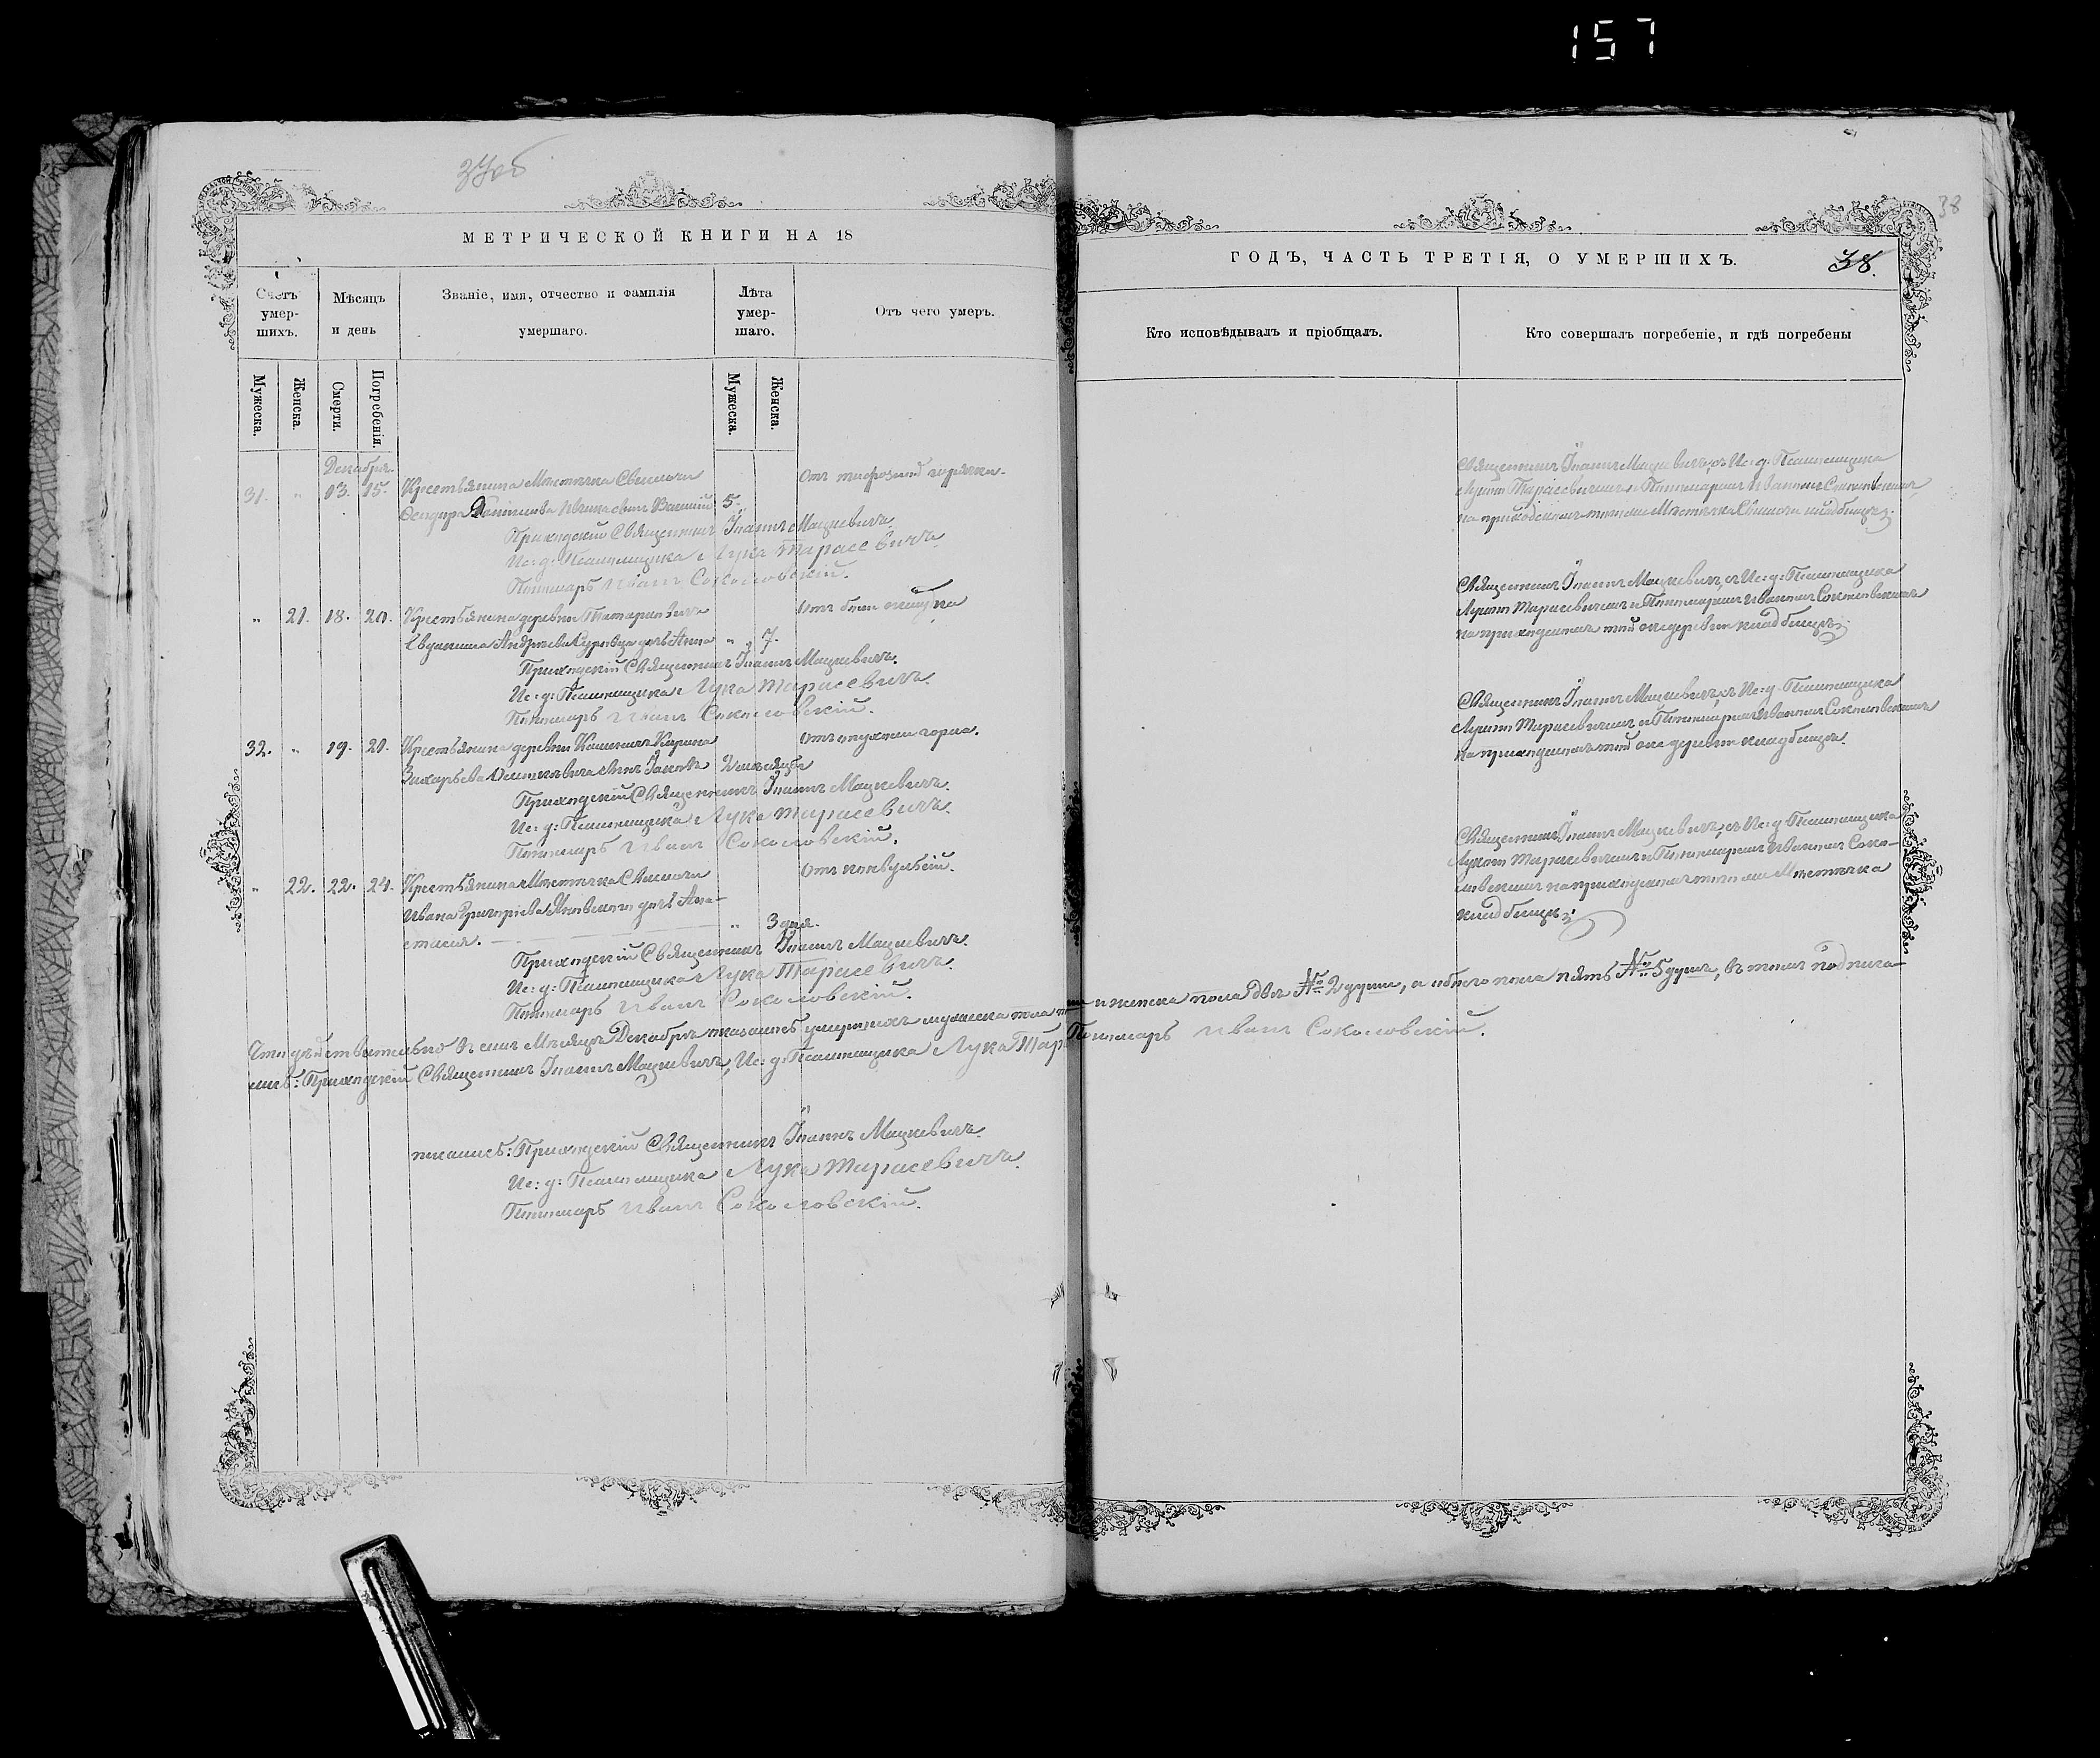 157
37об
МЕТРИЧЕСКОЙ КНИГИ НА 18
Счетъ умер-шихъ.
Мѣсяцъ и день
Званіе, имя, отчество и фамилія умершаго.
Лѣта умер-шаго.
Отъ чего умеръ.
Мужеска.
Женска.
Смерти.
Погребенія.
Мужеска.
Женска.
Декабря.
31. " 13. 15. Крестьянина Мѣстечка Свислочи
Отъ тифозной горячки.
Ѳеодора Данилова сынъ Василій 5.
Приходскій Священникъ Іоаннъ Мацкевичъ.
Ис: д: Псаломщика Лука Тарасевичъ.
Пономарь Иванъ Соколовскій.
" 21. 18. 20. Крестьянина деревни
Отъ боли
Евдокима Андреева дочь Анна " 7.
Приходскій Священникъ Іоаннъ Мацкевичъ.
Ис: д: Псаломщика Лука Тарасевичъ.
Пономарь Иванъ Соколовскій.
32. " 19. 20. Крестьянина деревни
Отъ опухоли горла.
Захарьева сынъ 2 мѣсяца
Приходскій Священникъ Іоаннъ Мацкевичъ.
Ис: д: Псаломщика Лука Тарасевичъ.
Пономарь Иванъ Соколовскій.
" 22. 22. 24. Крестьянина Мѣстечка Свислочи
Отъ конвульсій.
Ивана Григорьева дочь Ана-
стасія. " 3 дня.
Приходскій Священникъ Іоаннъ Мацкевичъ.
Ис: д: Псаломщика Лука Тарасевичъ.
Пономарь Иванъ Соколовскій.
Что дѣйствительно въ семъ Мѣсяцѣ Декабрѣ умершихъ мужеска пола три и женска пола двѣ № 2 души, а обоего пола пять № 5 душъ, въ томъ подписа-
лись: Приходскій Священникъ Іоаннъ Мацкевичъ, Ис: д: Псаломщика Лука Тар Пономарь Иванъ Соколовскій.
Приходскій Священникъ Іоаннъ Мацкевичъ.
Ис: д: Псаломщика Лука Тарасевичъ.
Пономарь Иванъ Соколовскій.
38
ГОДЪ, ЧАСТЬ ТРЕТІЯ, О УМЕРШИХЪ.
38.
Кто исповѣдывалъ и пріобщалъ.
Кто совершалъ погребеніе, и гдѣ погребены
Священникъ Іоаннъ Мацкевичъ, съ Ис: д: Псаломщика
Лукою Тарасевичемъ и Пономаремъ Иваномъ Соколовскимъ,
на приходскомъ Мѣстечка Свислочи кладбищѣ.
Священникъ Іоаннъ Мацкевичъ, съ Ис: д: Псаломщика
Лукою Тарасевичемъ и Пономаремъ Иваномъ Соколовскимъ
на приходскомъ той же деревни кладбищѣ.
Священникъ Іоаннъ Мацкевичъ, съ Ис: д: Псаломщика
Лукою Тарасевичемъ и Пономаремъ Иваномъ Соколовскимъ
на приходскомъ той же деревни кладбищѣ.
Священникъ Іоаннъ Мацкевичъ, съ Ис: д: Псаломщика
Лукою Тарасевичемъ и Пономаремъ Иваномъ Соко-
ловскимъ на приходскомъ Мѣстечка
кладбищѣ.